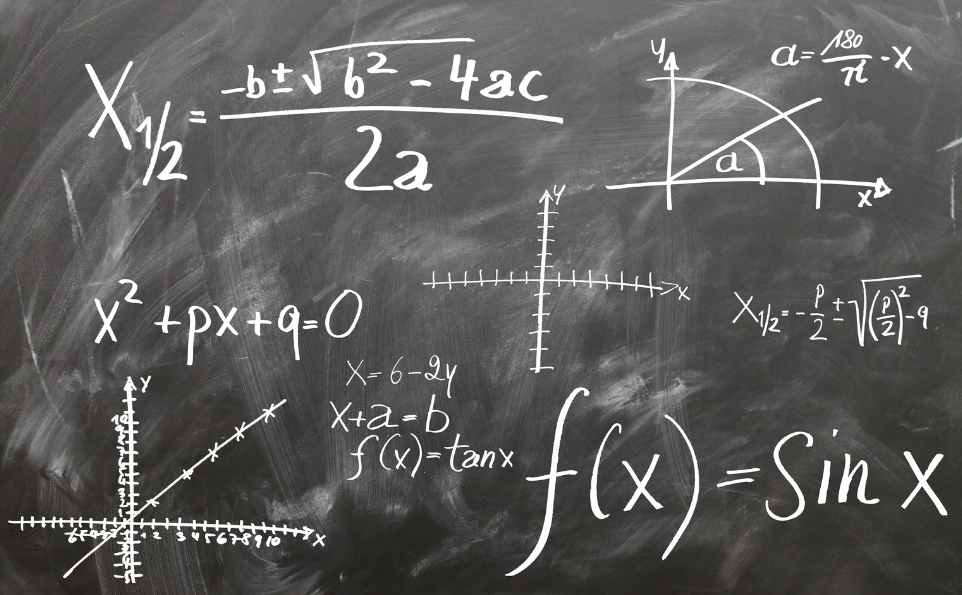 X₁/₂ = (-b ± √(b² - 4ac)) / 2a
y
a = 180/π · x
a
x
y
x
x² + px + q = 0
X₁/₂ = - p/2 ± √((p/2)² - q)
x = 6 - 2y
x + a = b
f(x) = tan x
f(x) = Sin x
y
10
1 2 3 4 5 6 7 8 9 10 x